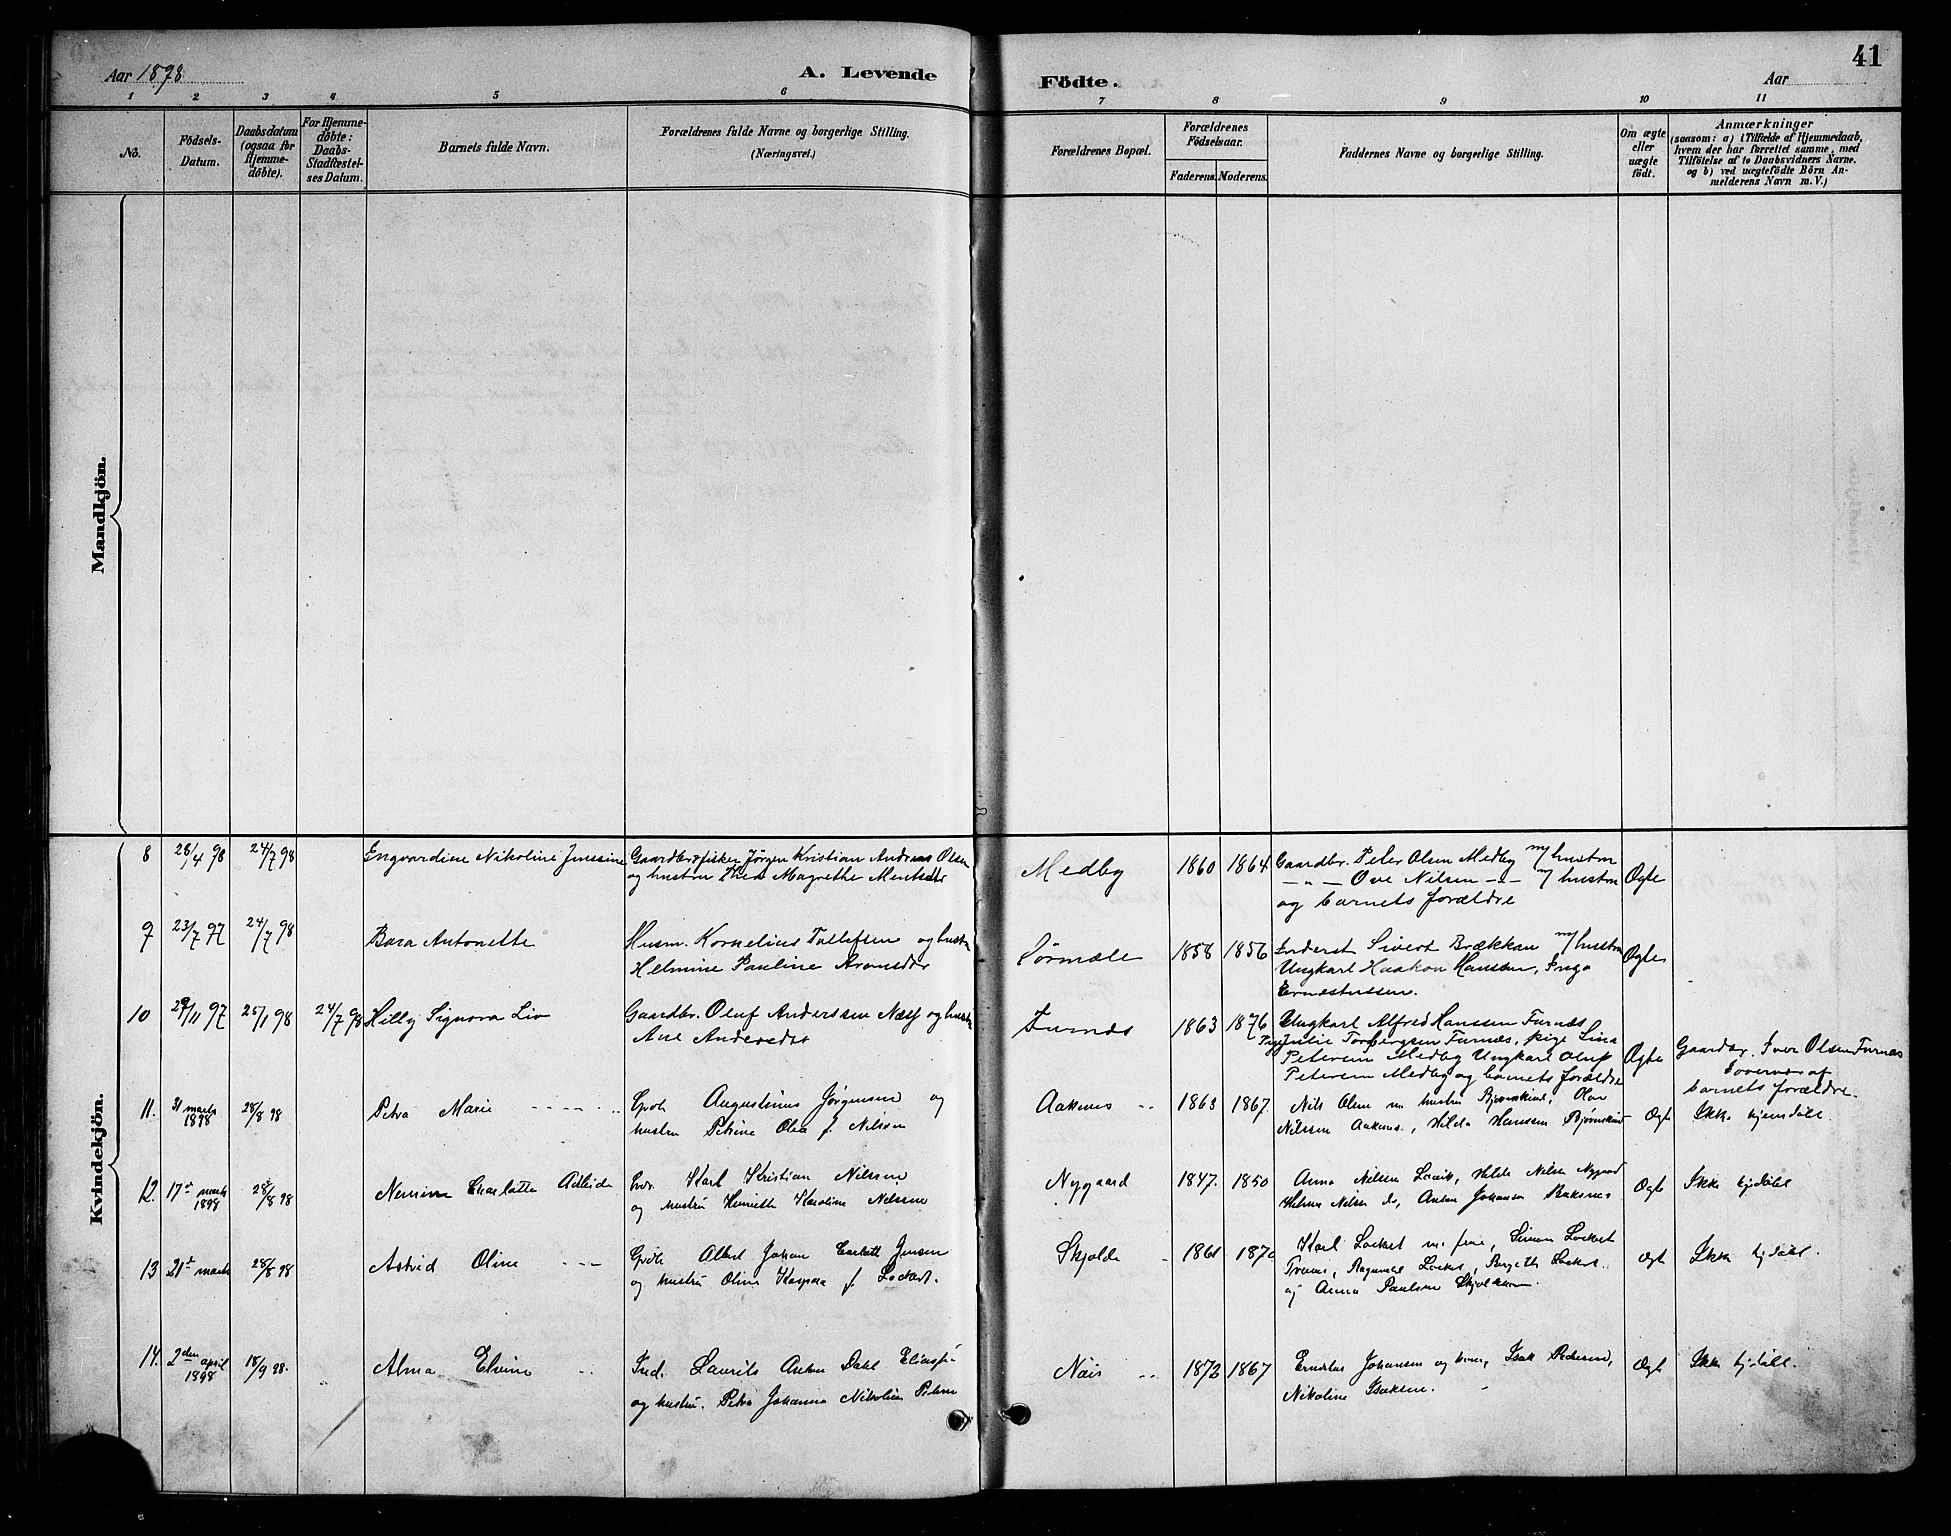 Aar 1898
A. Levende
Födte.
Aar
41
1 2 3 4 5 6 7 8 9 10 11
No.
Födsels-
Datum.
Daabsdatum
(ogsaa for
Hjemme-
döbte).
For Hjemme-
döbte:
Daabs-
Stadfæstel-
ses Datum.
Barnets fulde Navn.
Forældrenes fulde Navne og borgerlige Stilling.
(Næringsvei.)
Forældrenes Bopæl.
Forældrenes
Födselsaar.
Faderens.
Moderens.
Faddernes Navne og borgerlige Stilling.
Om ægte
eller
uægte
födt.
Anmærkninger
(saasom: a) i Tilfælde af Hjemmedaab,
hvem der har forrettet samme, med
Tilföielse af to Daabsvidners Navne,
og b) ved uægtefödte Börn An-
melderens Navn m. V.)
Mandkjön.
Kvindekjön.
8 28/4 98 24/7 98 Engvardine Nikoline Jenssine
Gaardbr & fisker Jørgen Kristian Andreas Olsen
og hustru Thea Magrethe Mentsdtr
Medby 1860 1864
Gaardbr. Peter Olsen Medby m/ hustru
-"- Ove Nilsen -"- m/ hustru
og barnets forældre
Ægte
9 23/7 97 24/7 98 Bara Antonette
Husm. Kornelius Tollefsen og hustru
Helmine Pauline Aronsdtr
Sörmæle 1858 1856
Inderst Sivert Brækkan m/ hustru
Ungkarl Haakon Hanssen, Inga
Ernæstussen.
Ægte
10 29/11 97 25/1 98 24/7 98 Hilly Signora Liv
Gaardbr. Oluf Anderssen Næss og hustru
Ane Andersdtr
Furnæs 1863 1876
Ungkarl Alfred Hanssen Furnæs
Pige Julie Torbergsen Furnæs, pige Lina
Petersen Medby Ungkarl Oluf
Petersen Medby og barnets forældre
Ægte
Gaardbr. Iver Olsen Furnæs
i overvær af
barnets forældre.
11. 31 marts 1898 28/8 98 Petra Marie
Gpbr Augustinus Jørgensen og
hustru Petrine Olea f. Nilssen
Aaknes 1863 1867.
Nils Olsen m hustru Bjørnskind, Olav
Nilssen Aaknes, Hilda Hanssen Bjørnskind
Ægt
Ikke hjemdöbt.
12. 17de marts 1898 28/8 98 Charlotte Adleide
Karl Kristian Nilssen
og hustru Henriette Karoline Nilssen
Nygaard 1847. 1850
Anna Nilsen Lovik, Hilda Nilsen Nygaard
Helmer Nilsen do, Anton Johansen Baksnes
Ægt
Ikke hjdöbt
13 21de marts 28/8 98 Astrid Oline
Gpbr Albert Johan Jensen
og hustru Oline Kaspara f. Lockert.
Skjolde 1861 1870
Karl Lockert m. frue, Simon Lockert
Ragna Lockert, Bergith Lockert
og Anna Paulsen
Ægt
Ikke hjdöbt.
14. 2den april 1898 18/9 98. Alma Elvine
Ind. Laurits Anton Dahl
og hustru. Petra Johanna Nikoline
Nöis 1872 1867
Johansen og kone, Isak Pedersen,
Nikoline Isaksen.
Ægt
Ikke hjdöbt.